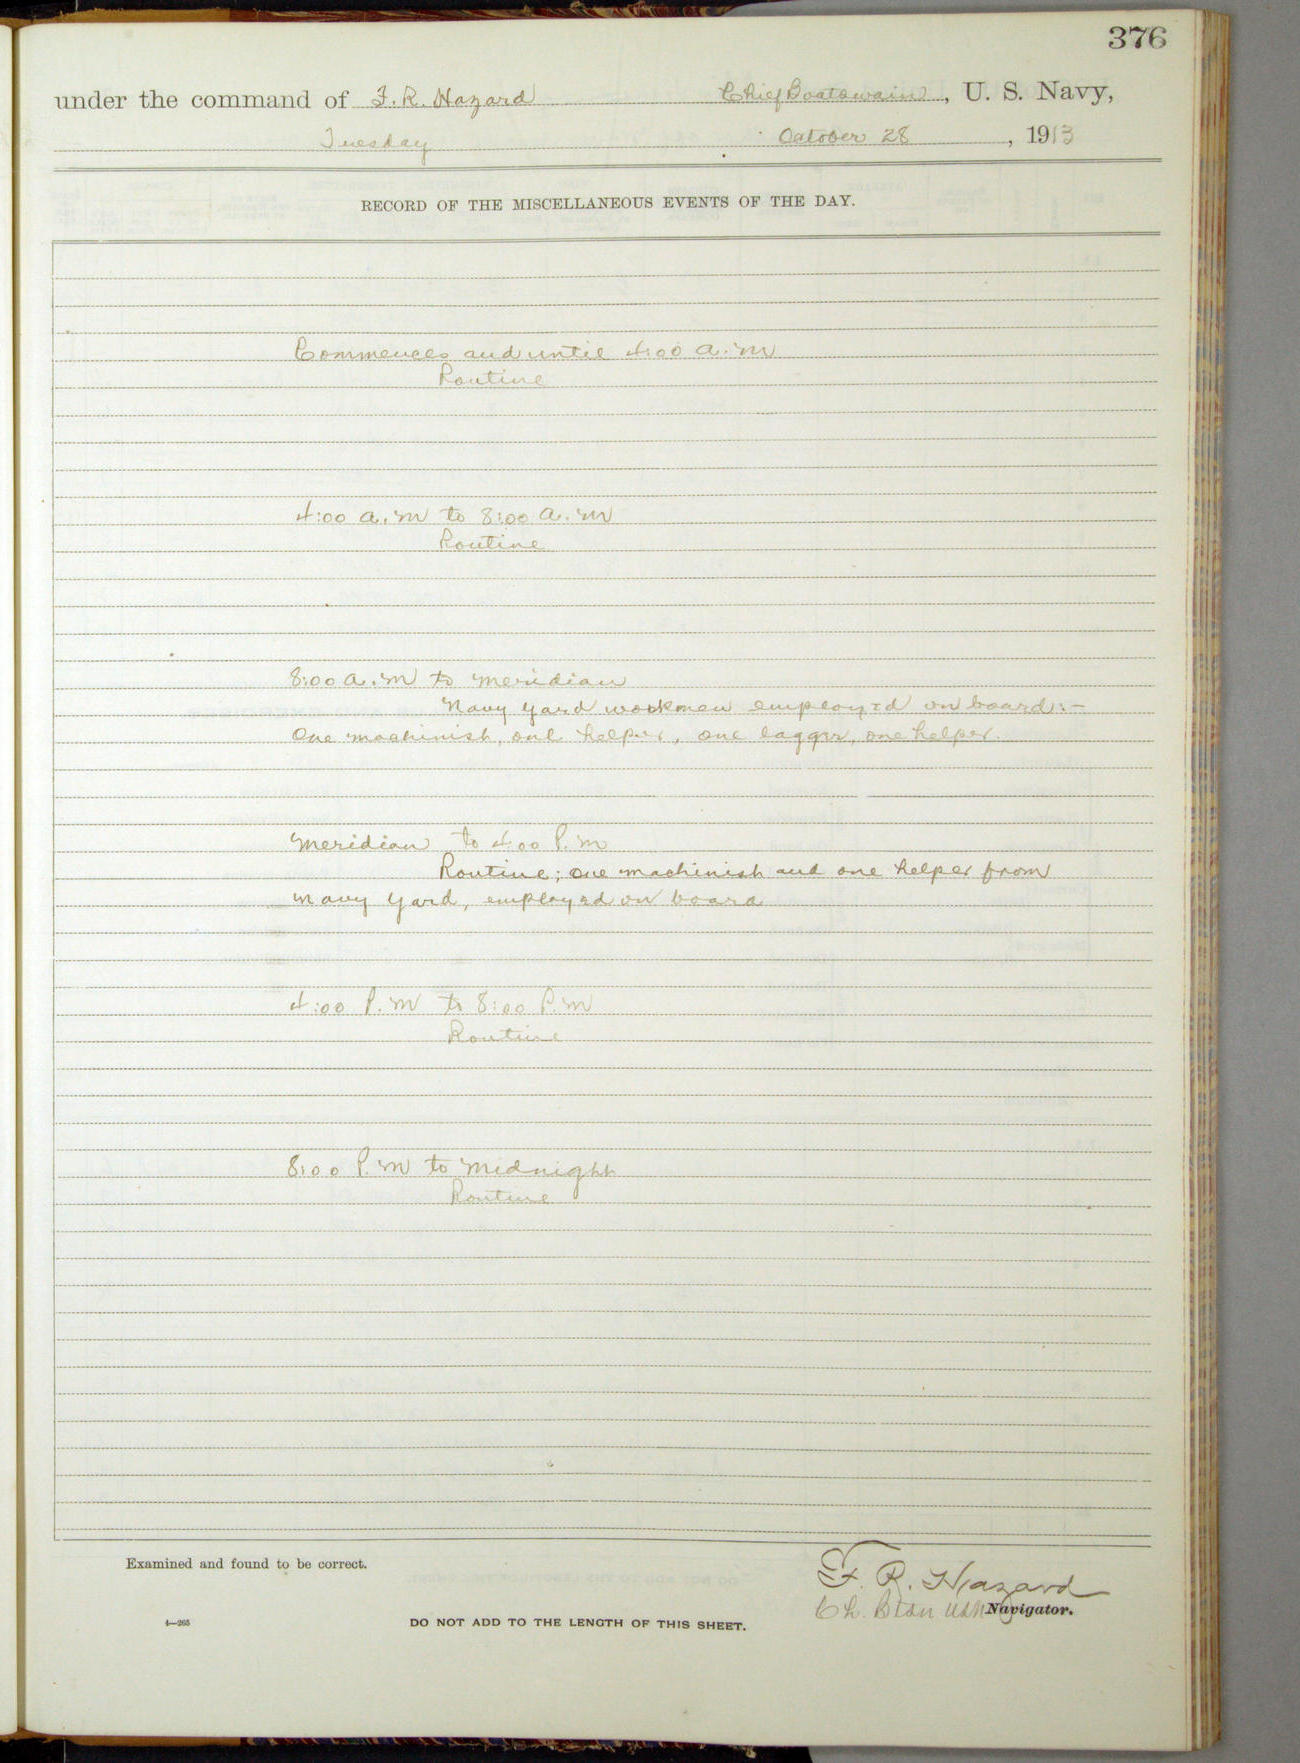 376
under the command of F. R. Hazard Chief Boatswain, U. S. Navy,
Tuesday October 28, 1913
RECORD OF THE MISCELLANEOUS EVENTS OF THE DAY.
Commences and until 4:00 a.m
Routine
4:00 a.m to 8:00 a.m
Routine
8:00 a.m to meridian
Navy Yard workmen employed on board:-
One machinish, one helper, one lagger, one helper.
Meridian to 4:00 P.m
Routine; one machinish and one helper from
Navy Yard, employed on board
4:00 P.m to 8:00 P.m
Routine
8:00 P.m to Midnight
Routine
Examined and found to be correct.
F. R. Hazard
Ch. Btsn USN Navigator.
4—265
DO NOT ADD TO THE LENGTH OF THIS SHEET.